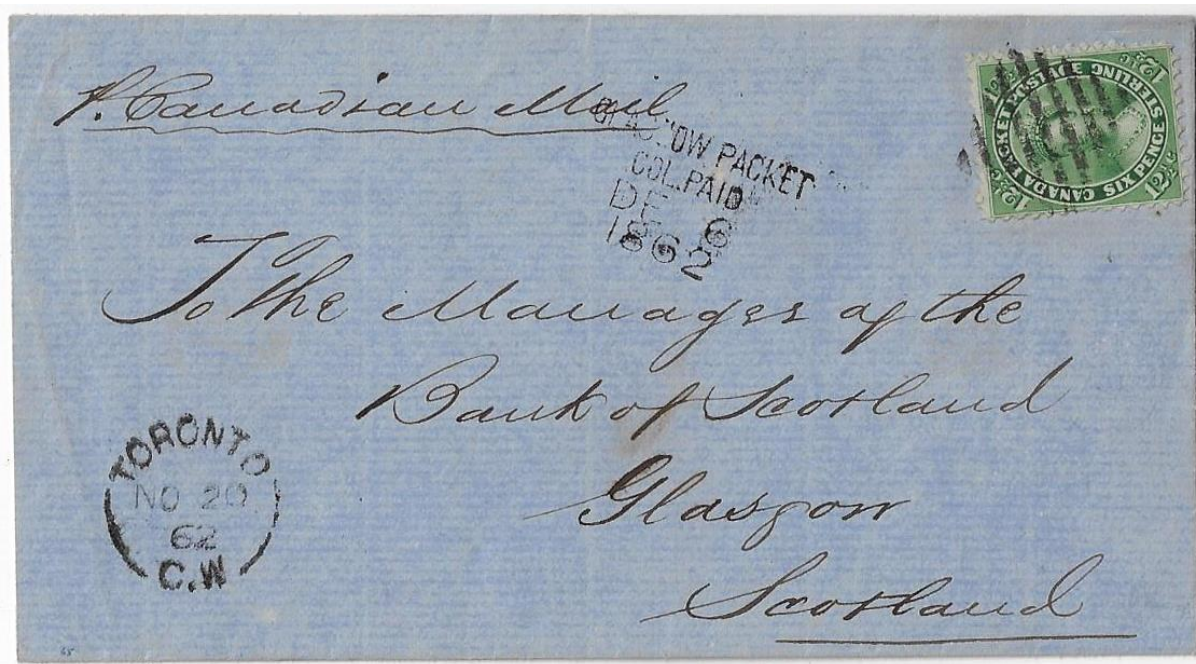 p. Canadian Mail.
GLASGOW PACKET
COL. PAID
DE 6
1862
12½c
12½c
12½c
12½c
CANADA PACKET POSTAGE
SIX PENCE STERLING
To the Manager of the
Bank of Scotland
Glasgow
Scotland
TORONTO
NO 20
62
C.W